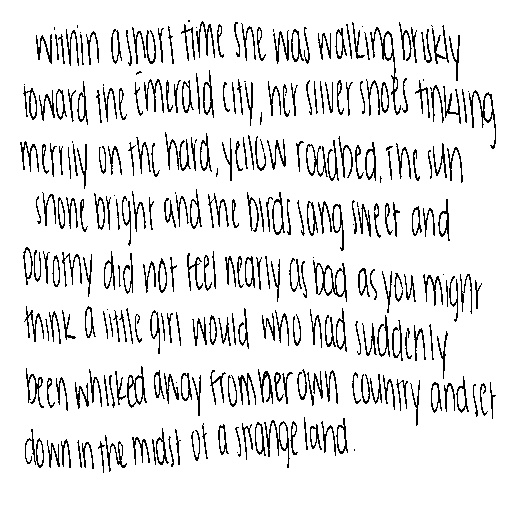 within a short time she was walking briskly
toward the Emerald City, her silver shoes tinkling
merrily on the hard, yellow roadbed. The sun
shone bright and the birds sang sweet and
Dorothy did not feel nearly as bad as you might
think a little girl would who had suddenly
been whisked away from her own country and set
down in the midst of a strange land.